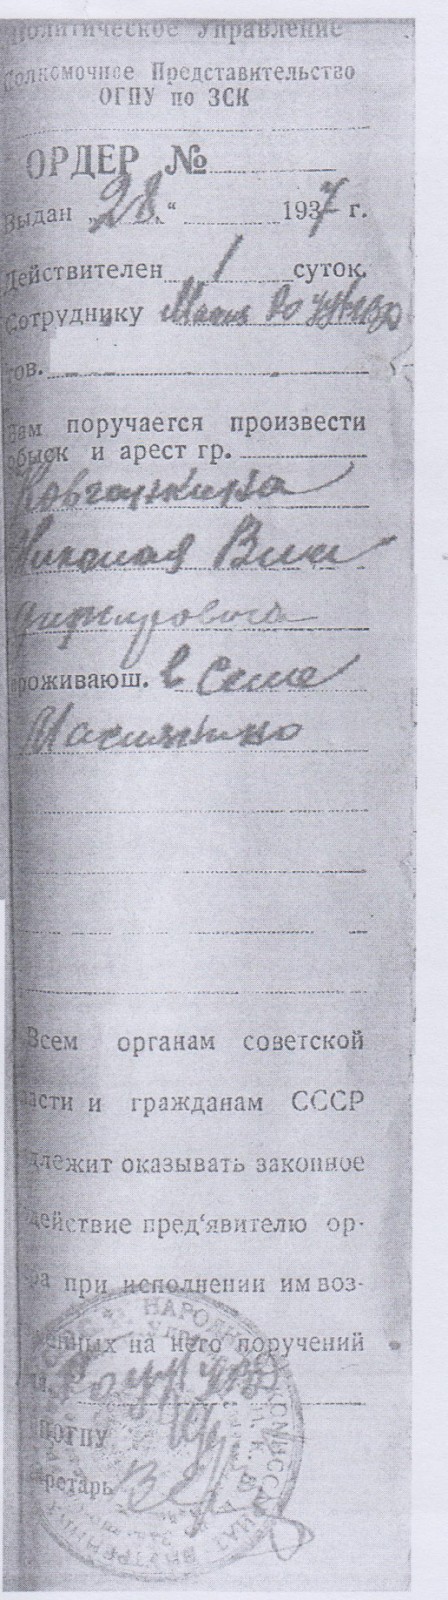 Политическое Управление
Полномочное Представительство
ОГПУ по ЗСК
ОРДЕР №
Выдан „28“ 1937 г.
Действителен 1 суток.
Сотруднику
тов.
Вам поручается произвести
обыск и арест гр.
Ковганкина
Николая Вла
димировича
проживающ. в селе
Маслянино
Всем органам советской
власти и гражданам СССР
длежит оказывать законное
одействие пред‘явителю ор-
ра при исполнении им воз-
женных на него поручений
НАРОДН КОМИССАРИАТ ВНУТРЕННИХ
ПОГПУ
кретарь